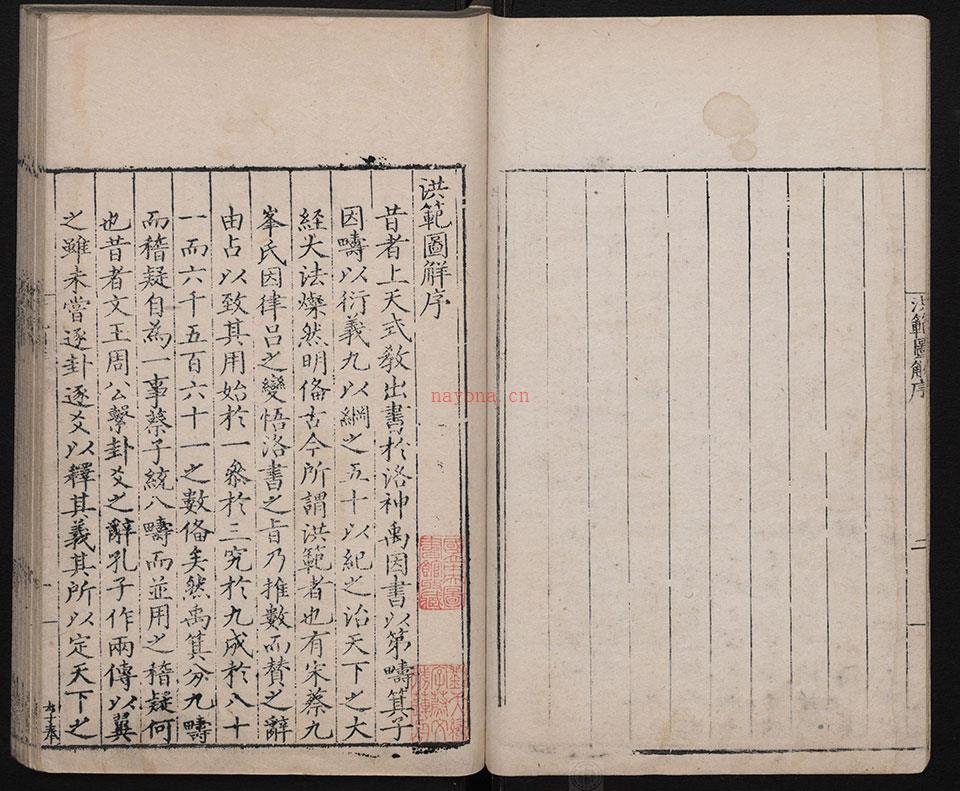 洪範圖解序
二
洪範圖解序
昔者上天式教出書於洛神禹因書以第疇箕子
因疇以衍義九以綱之五十以紀之治天下之大
經大法燦然明備古今所謂洪範者也有宋蔡九
峯氏因律吕之變悟洛書之旨乃推數而贊之辭
由占以致其用始於一叅於三究於九成於八十
一而六千五百六十一之數備矣然禹箕分九疇
而稽疑自為一事蔡子統八疇而並用之稽疑何
也昔者文王周公擊卦爻之辭孔子作兩傳以翼
之雖未嘗逐卦逐爻以釋其義其所以定天下之
nayona.cn